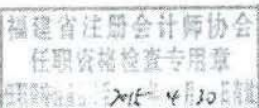 福建省注册会计师协会
任职资格检查专用章
2015 4 30